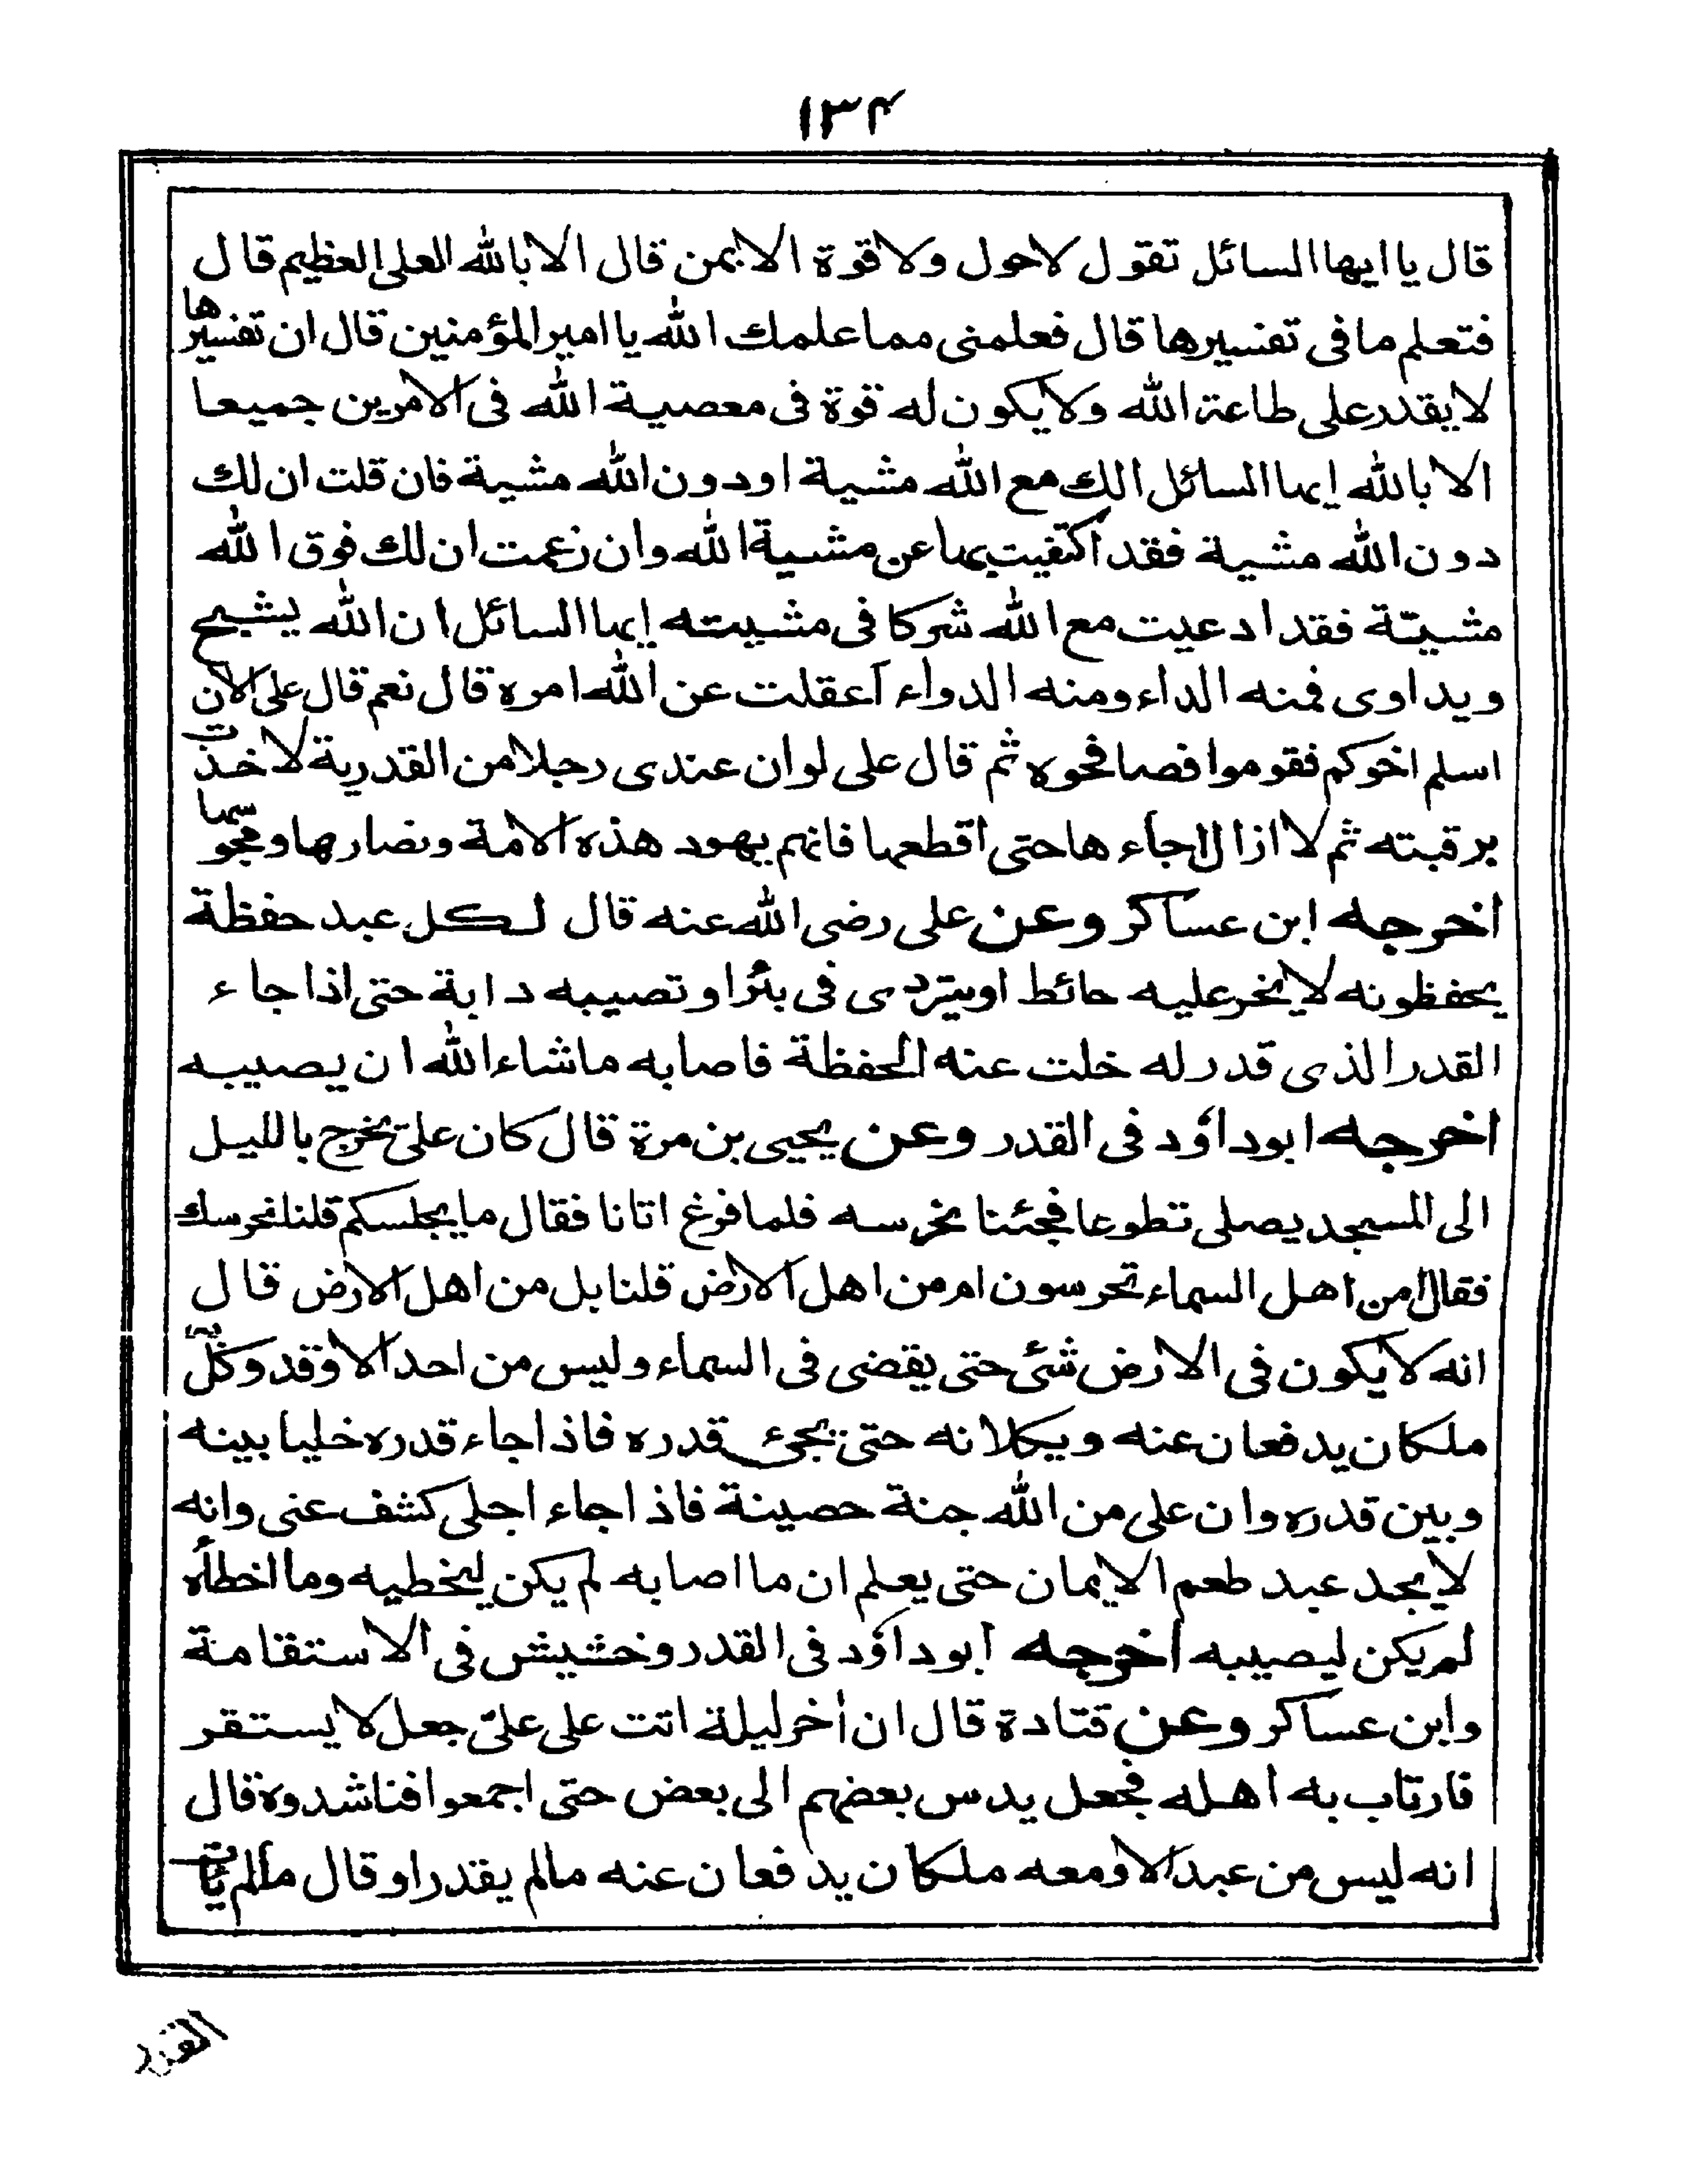 ۱۳۴
قال يا ايها السائل تقول لاحول ولا قوة الا بمن قال الا بالله العلى العظيم قال
فتعلم ما فى تفسيرها قال فعلمنى مما علمك الله يا امير المؤمنين قال ان تفسيرها
لا يقدر على طاعة الله ولا يكون له قوة فى معصية الله فى الامرين جميعا
الا بالله ايها السائل الك مع الله مشية او دون الله مشية فان قلت ان لك
دون الله مشية فقد اكتفيت بها عن مشية الله وان زعمت ان لك فوق الله
مشيّة فقد ادعيت مع الله شركا فى مشيته ايها السائل ان الله يشبح
ويداوى فمنه الداء ومنه الدواء آعقلت عن الله امره قال نعم قال على الآن
اسلم اخوكم فقوموا فصافحوه ثم قال على لو ان عندى رجلا من القدرية لاخذت
برقبته ثم لا ازال اجاء ها حتى اقطعها فانهم يهود هذه الامة ونصارها ومجوسها
اخرجه ابن عساكر وعن على رضى الله عنه قال لكل عبد حفظة
يحفظونه لا يخر عليه حائط او يتردى فى بئر او تصيبه دابة حتى اذا جاء
القدر الذى قدر له خلت عنه الحفظة فاصابه ماشاء الله ان يصيبه
اخرجه ابوداؤد فى القدر وعن يحيى بن مرة قال كان علىّ يخرج بالليل
الى المسجد يصلى تطوعا فجئنا نحرسه فلما فرغ اتانا فقال ما يجلسكم قلنا نحرسك
فقال امن اهل السماء تحرسون ام من اهل الارض قلنا بل من اهل الارض قال
انه لا يكون فى الارض شئ حتى يقضى فى السماء وليس من احد الا وقد وكّل به
ملكان يدفعان عنه ويكلانه حتى يجئ قدره فاذا جاء قدره خليا بينه
وبين قدره وان على من الله جنة حصينة فاذا جاء اجلى كشف عنى وانه
لا يجد عبد طعم الايمان حتى يعلم ان ما اصابه لم يكن ليخطيه وما اخطأه
لم يكن ليصيبه اخرجه ابوداؤد فى القدر وخشيش فى الاستقامة
وابن عساكر وعن قتادة قال ان أخر ليلة اتت على علىّ جعل لا يستقر
فارتاب به اهله فجعل يدس بعضهم الى بعض حتى اجمعوا فناشدوه قال
انه ليس من عبد الا ومعه ملكان يدفعان عنه مالم يقدر او قال مالم يأت
القدر